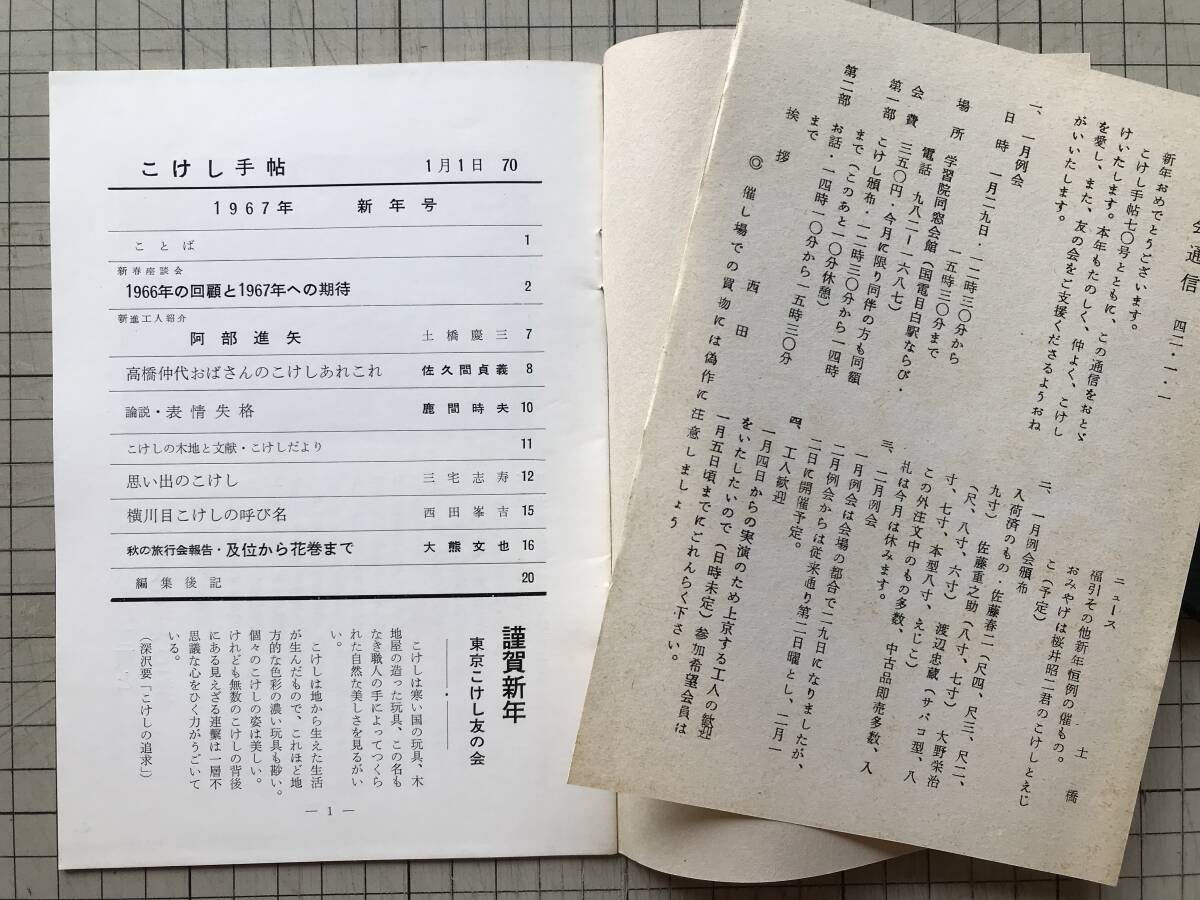 こけし手帖 1月1日 70
1967年 新年号
ことば 1
新春座談会
1966年の回顧と1967年への期待 2
新進工人紹介
阿部進矢 土橋慶三 7
高橋仲代おばさんのこけしあれこれ 佐久間貞義 8
論説・表情失格 鹿間時夫 10
こけしの木地と文献・こけしだより 11
思い出のこけし 三宅志寿 12
横川目こけしの呼び名 西田峯吉 15
秋の旅行会報告・及位から花巻まで 大熊文也 16
編集後記 20
謹賀新年
東京こけし友の会
こけしは寒い国の玩具、木
地屋の造った玩具、この名も
なき職人の手によってつくら
れた自然な美しさを見るがい
い。
こけしは地から生えた生活
が生んだもので、これほど地
方的な色彩の濃い玩具も尠い。
個々のこけしの姿は美しい。
けれども無数のこけしの背後
にある見えざる連繋は一層不
思議な心をひく力がうごいて
いる。
(深沢要「こけしの追求」)
— 1 —
会通信 四二・一・一
新年おめでとうございます。
こけし手帖七〇号とともに、この通信をおとゞ
けいたします。本年もたのしく、仲よく、こけし
を愛し、また、友の会をご支援くださるようおね
がいいたします。
一、一月例会
日時 一月二九日・一二時三〇分から
一五時三〇分まで
場所 学習院同窓会館(国電目白駅ならび・
電話 九八二ー一六八七)
会費 三五〇円・今月に限り同伴の方も同額
第一部 こけし頒布・一二時三〇分から一四時
まで(このあと一〇分休憩)
第二部 お話・一四時一〇分から一五時三〇分
まで
挨拶 西田
◎催し場での買物には偽作に注意しましょう
ニュース 土橋
福引その他新年恒例の催もの。
おみやげは桜井昭二君のこけしとえじ
こ(予定)
二、一月例会頒布
入荷済のもの・佐藤春二(尺四、尺三、尺二、
九寸) 佐藤重之助(八寸、七寸) 大野栄治
(尺、八寸、六寸) 渡辺忠蔵(サバコ型、八
寸、七寸、本型八寸、えじこ)
この外注文中のもの多数、中古品即売多数、入
札は今月は休みます。
三、二月例会
一月例会は会場の都合で二九日になりましたが、
二月例会からは従来通り第二日曜とし、二月一
二日に開催予定。
四、工人歓迎
一月四日からの実演のため上京する工人の歓迎
をいたしたいので(日時未定)参加希望会員は
一月五日頃までにごれんらく下さい。